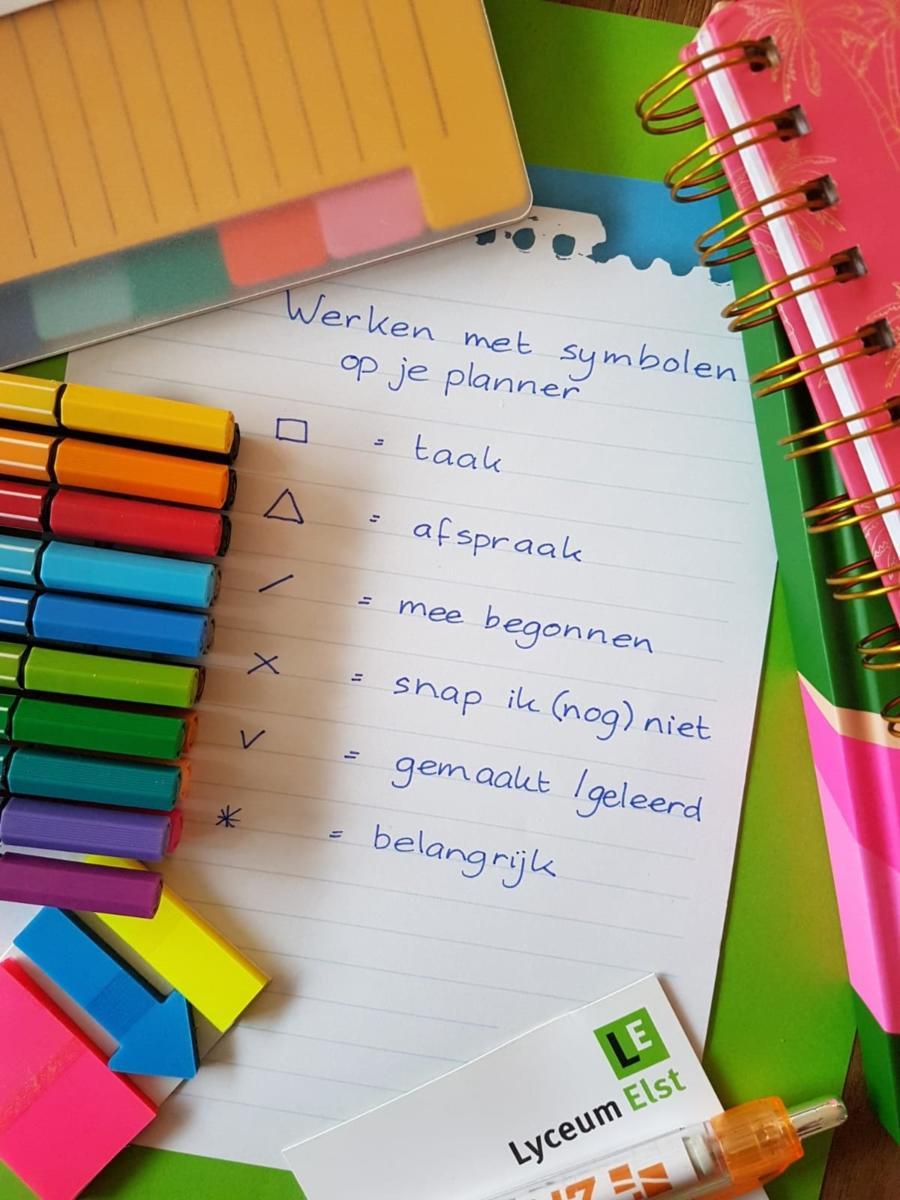 Werken met symbolen
op je planner
□ = taak
△ = afspraak
/ = mee begonnen
X = snap ik (nog) niet
V = gemaakt / geleerd
* = belangrijk
LE
Lyceum Elst